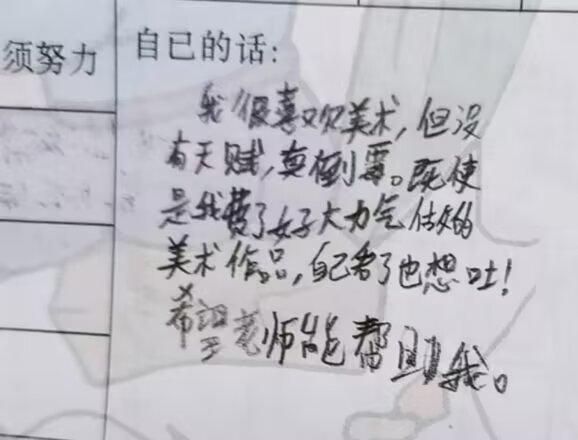 须努力
自己的话：
我很喜欢美术，但没
有天赋，真倒霉。既使
是我费了好大力气做的
美术作品，自己看了也想吐！
希望老师能帮助我。